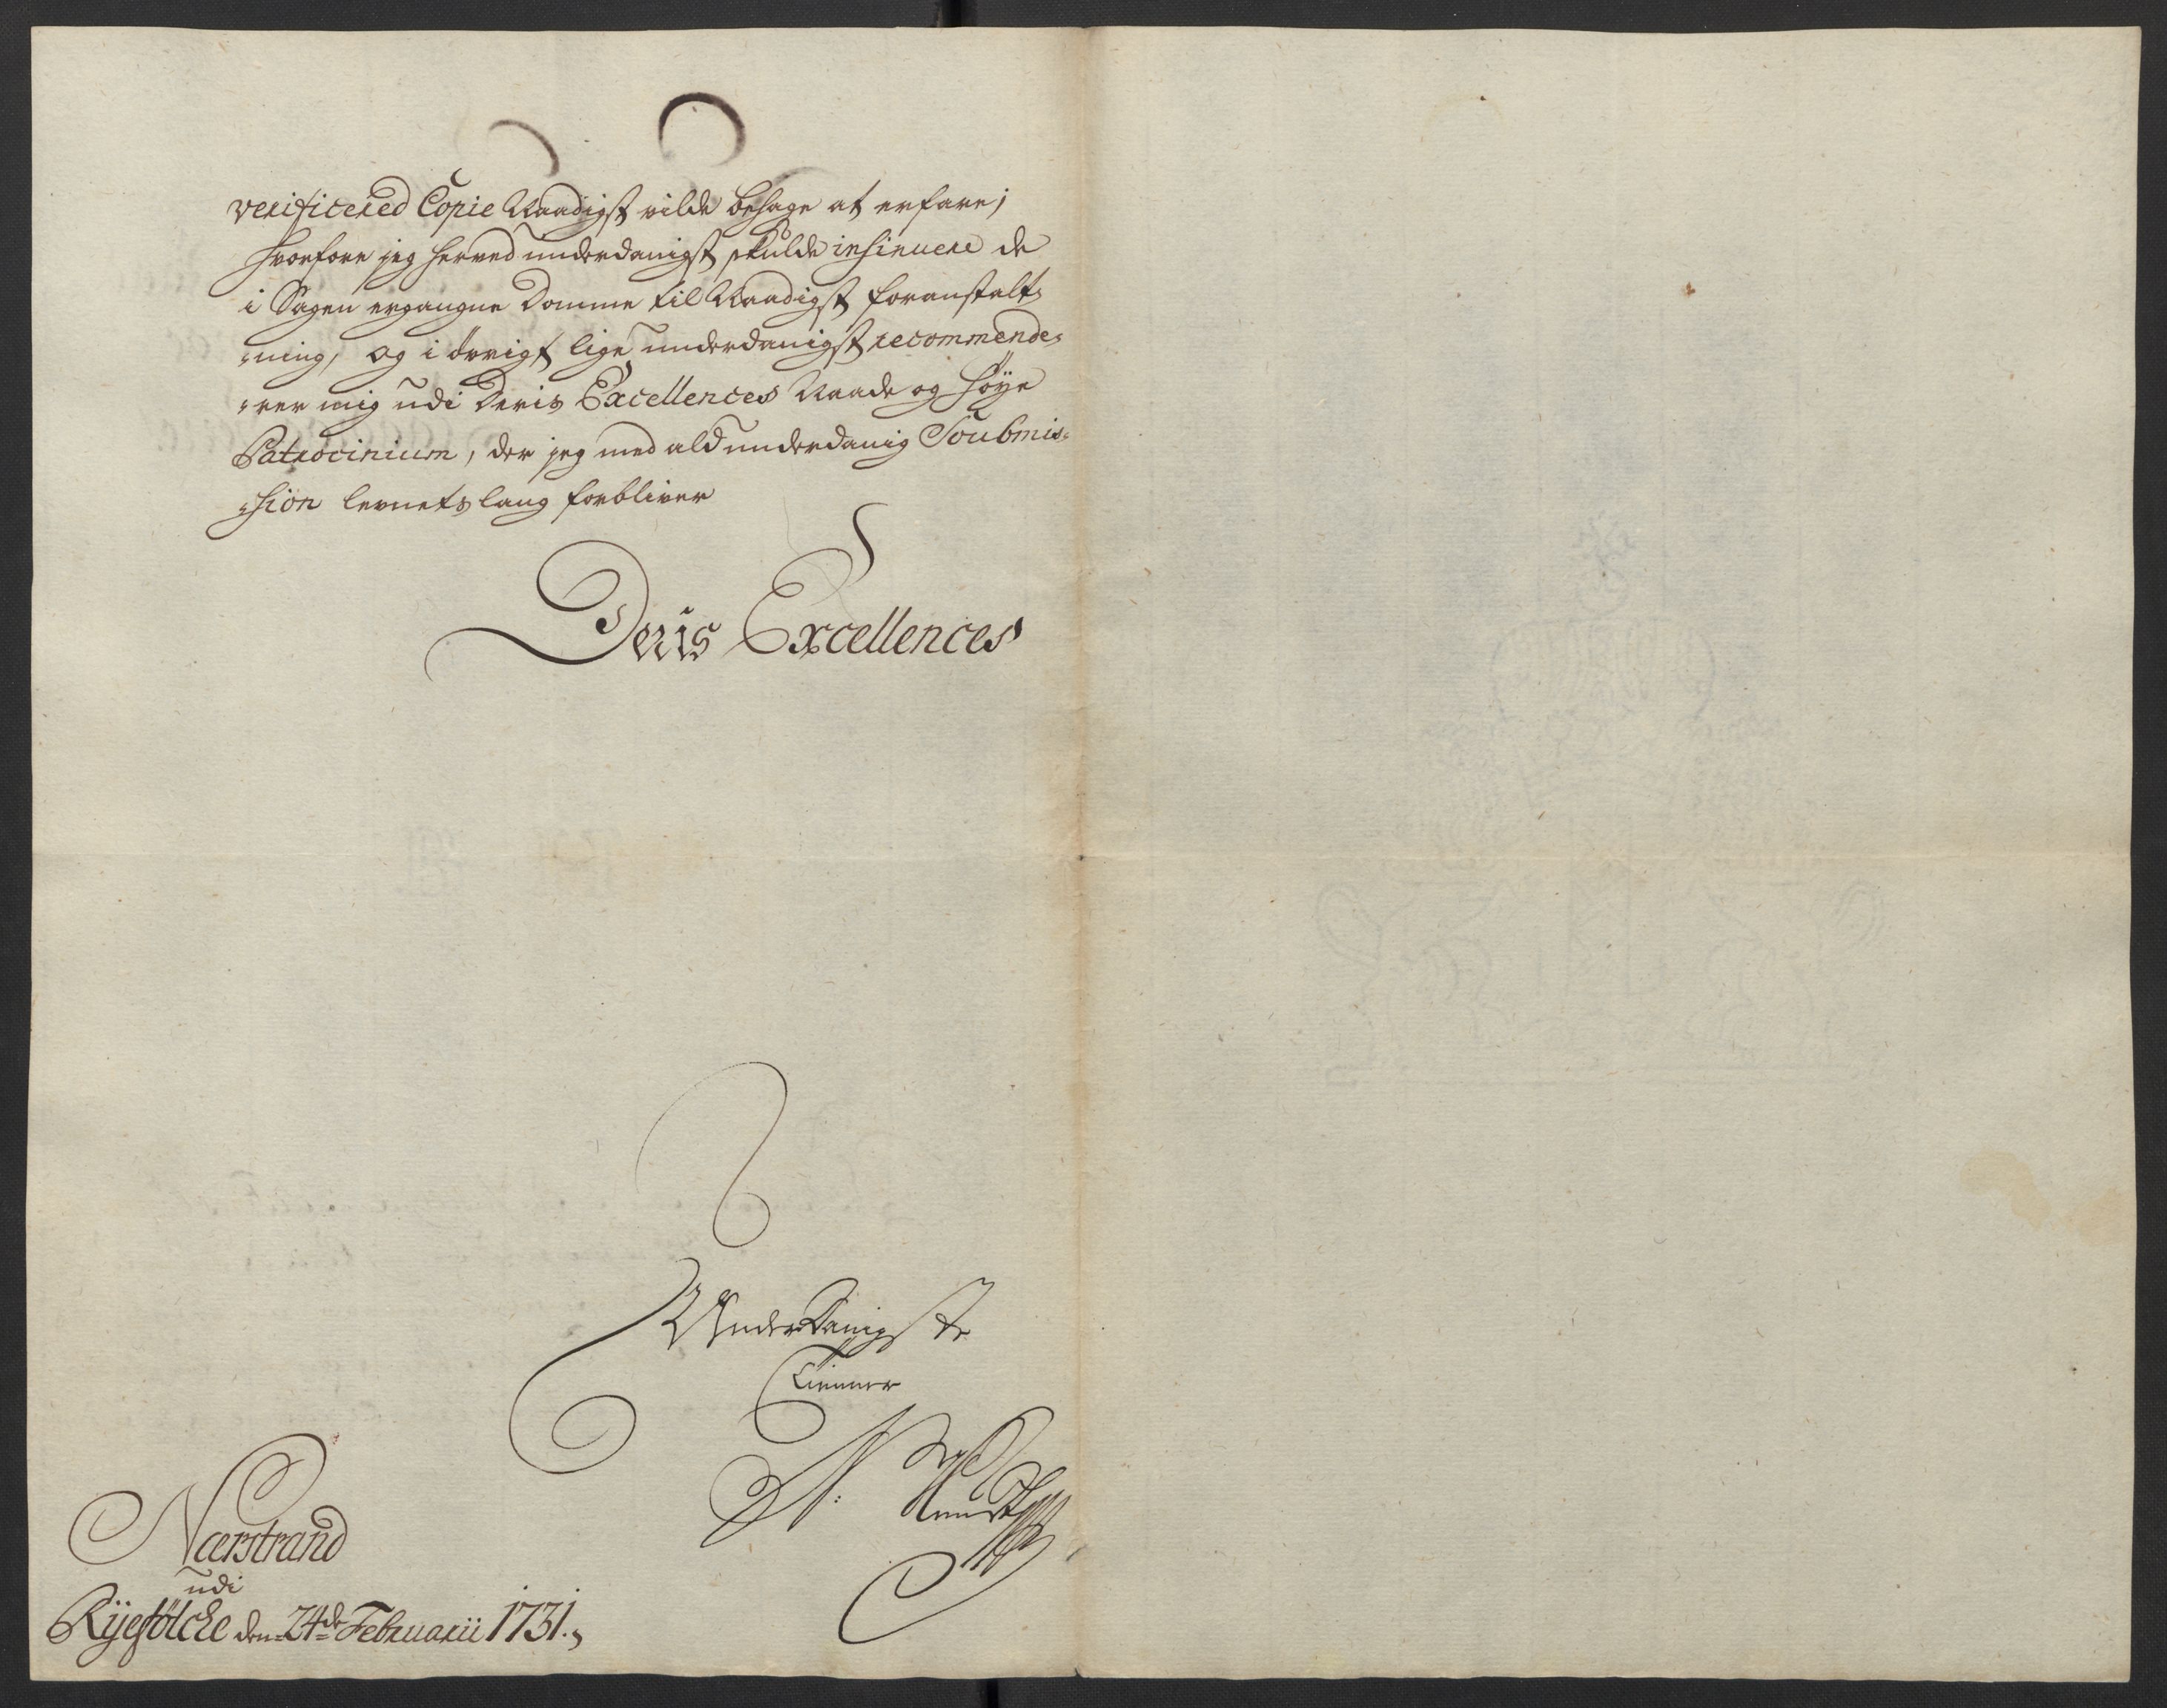 verificered Copie Naadigst vilde behage at erfare;
hvorfore jeg herved underdanigst skulde insinuere de
i Sagen ergangne Domme til Naadigst foranstalt⸗
⸗ning, og i övrigt lige underdanigst recommende⸗
⸗rer mig udi Deris Excellences Naade og höye
Patrocinium, der jeg med ald underdanig Soubmis⸗
⸗sion levnets lang forbliver
Deris Excellences
Underdanigste
Tienner
N:
Nærstrand
udi
Ryefölcke den 24de Februarii 1731.